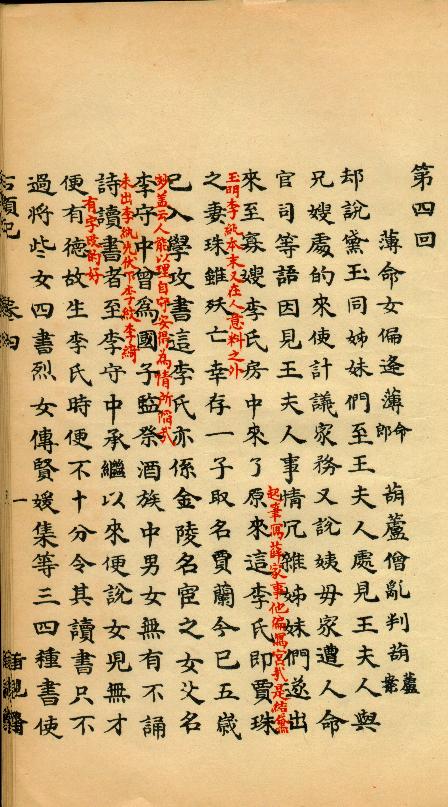 第四回
薄命女偏逢薄命郎 葫蘆僧亂判葫蘆案
却說黛玉同姊妹們至王夫人處見王夫人與
兄嫂處的來使計議家務又說姨母家遭人命
官司等語因見王夫人事情冗雜姊妹們遂出
起筆寫薛家事他偏寫宮裁是結黛
來至寡嫂李氏房中來了原來這李氏即賈珠
玉明李紈本末又在人意料之外
之妻珠雖殀亡幸存一子取名賈蘭今已五歲
已入學攻書這李氏亦係金陵名宦之女父名
妙盖云人能以理自守安得為情所陷哉
李守中曾為國子監祭酒族中男女無有不誦
未出李紈先伏下李紋李綺
詩讀書者至李守中承繼以來便說女兒無才
有字改的好
便有德故生李氏時便不十分令其讀書只不
過將些女四書烈女傳賢媛集等三四種書使
一